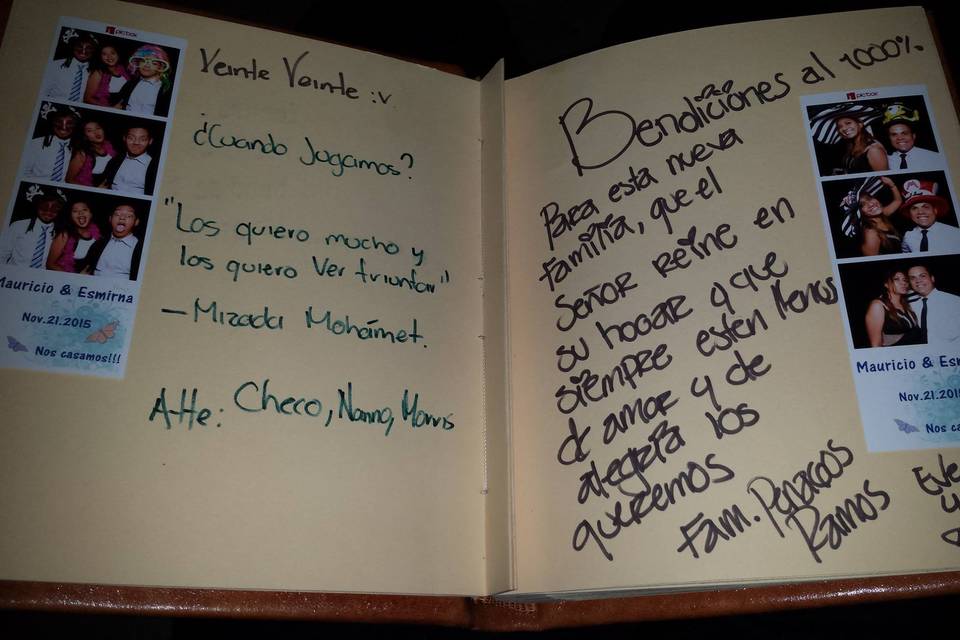 picbox
Mauricio & Esmirna
Nov.21.2015
Nos casamos!!!
Veinte Veinte :v
¿Cuando Jugamos?
"Los quiero mucho y
los quiero Ver triunfar"
- Mizada Mohámet.
Atte: Checo, Nanno, Morris
Bendiciónes al 1000%
Para esta nueva
familia, que el
Señor reine en
su hogar y que
siempre esten llenos
de amor y de
alegría los
queremos
Fam. Penagos
Ramos
picbox
Mauricio & Esm
Nov.21.201
Nos ca
Eve